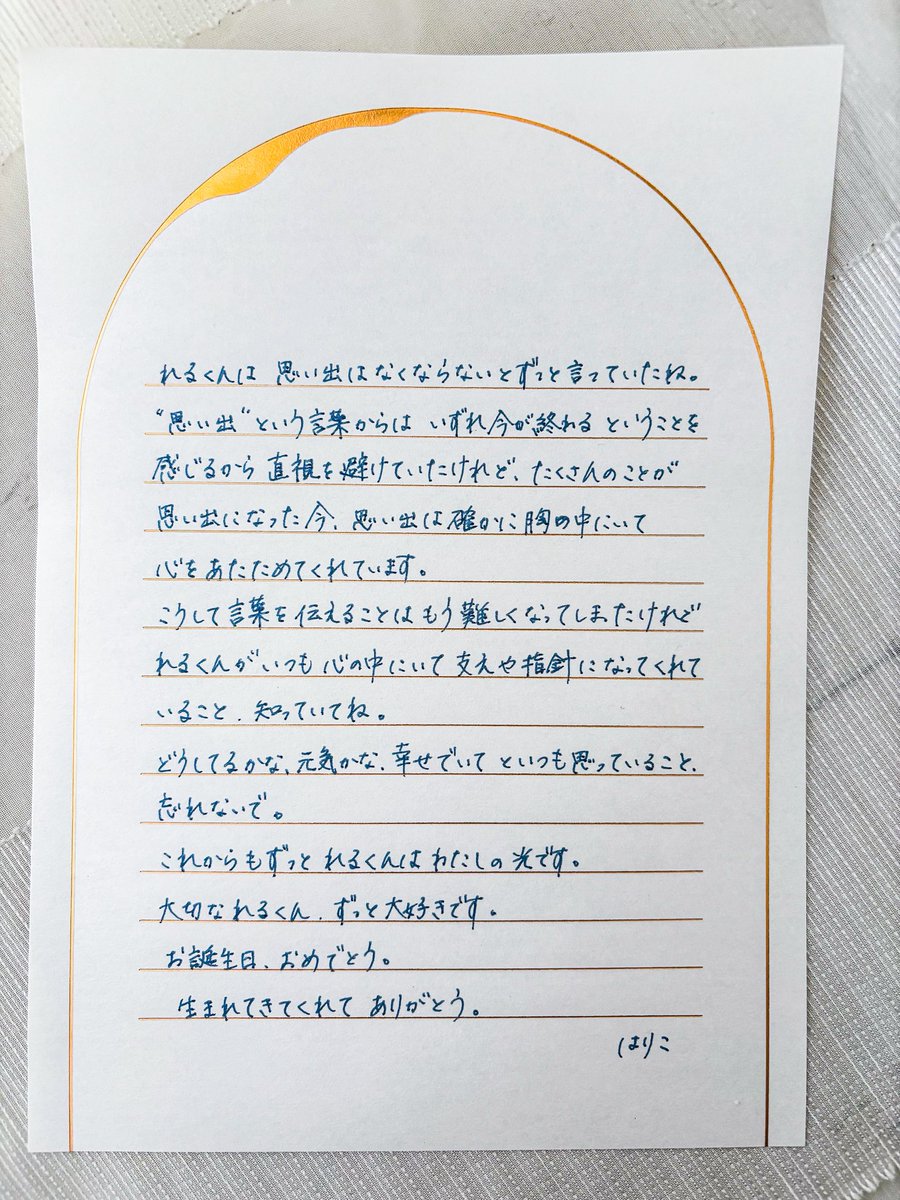 れるくんは 思い出はなくならないとずっと言っていたね。
"思い出"という言葉からは いずれ今が終わる ということを
感じるから 直視を避けていたけれど、たくさんのことが
思い出になった今、思い出は確かに胸の中にいて
心をあたためてくれています。
こうして言葉を伝えることはもう難しくなってしまたけれど
れるくんがいつも 心の中にいて 支えや指針になってくれて
いること、知っていてね。
どうしてるかな、元気かな、幸せでいて といつも思っていること、
忘れないで。
これからもずっと れるくんは わたしの光です。
大切なれるくん、ずっと大好きです。
お誕生日、おめでとう。
生まれてきてくれて ありがとう。
はりこ